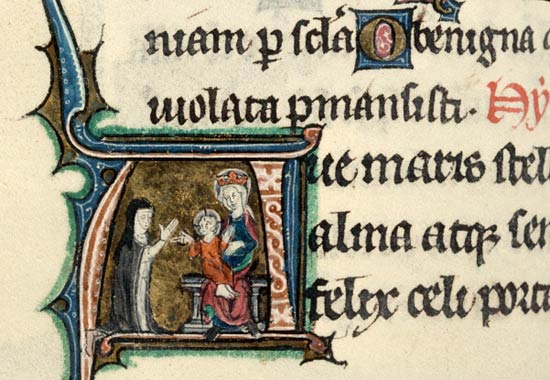 niam p scla O benigna
uiolata pmansisti. Hy
Aue maris stell
alma atq; sen
felix celi porta